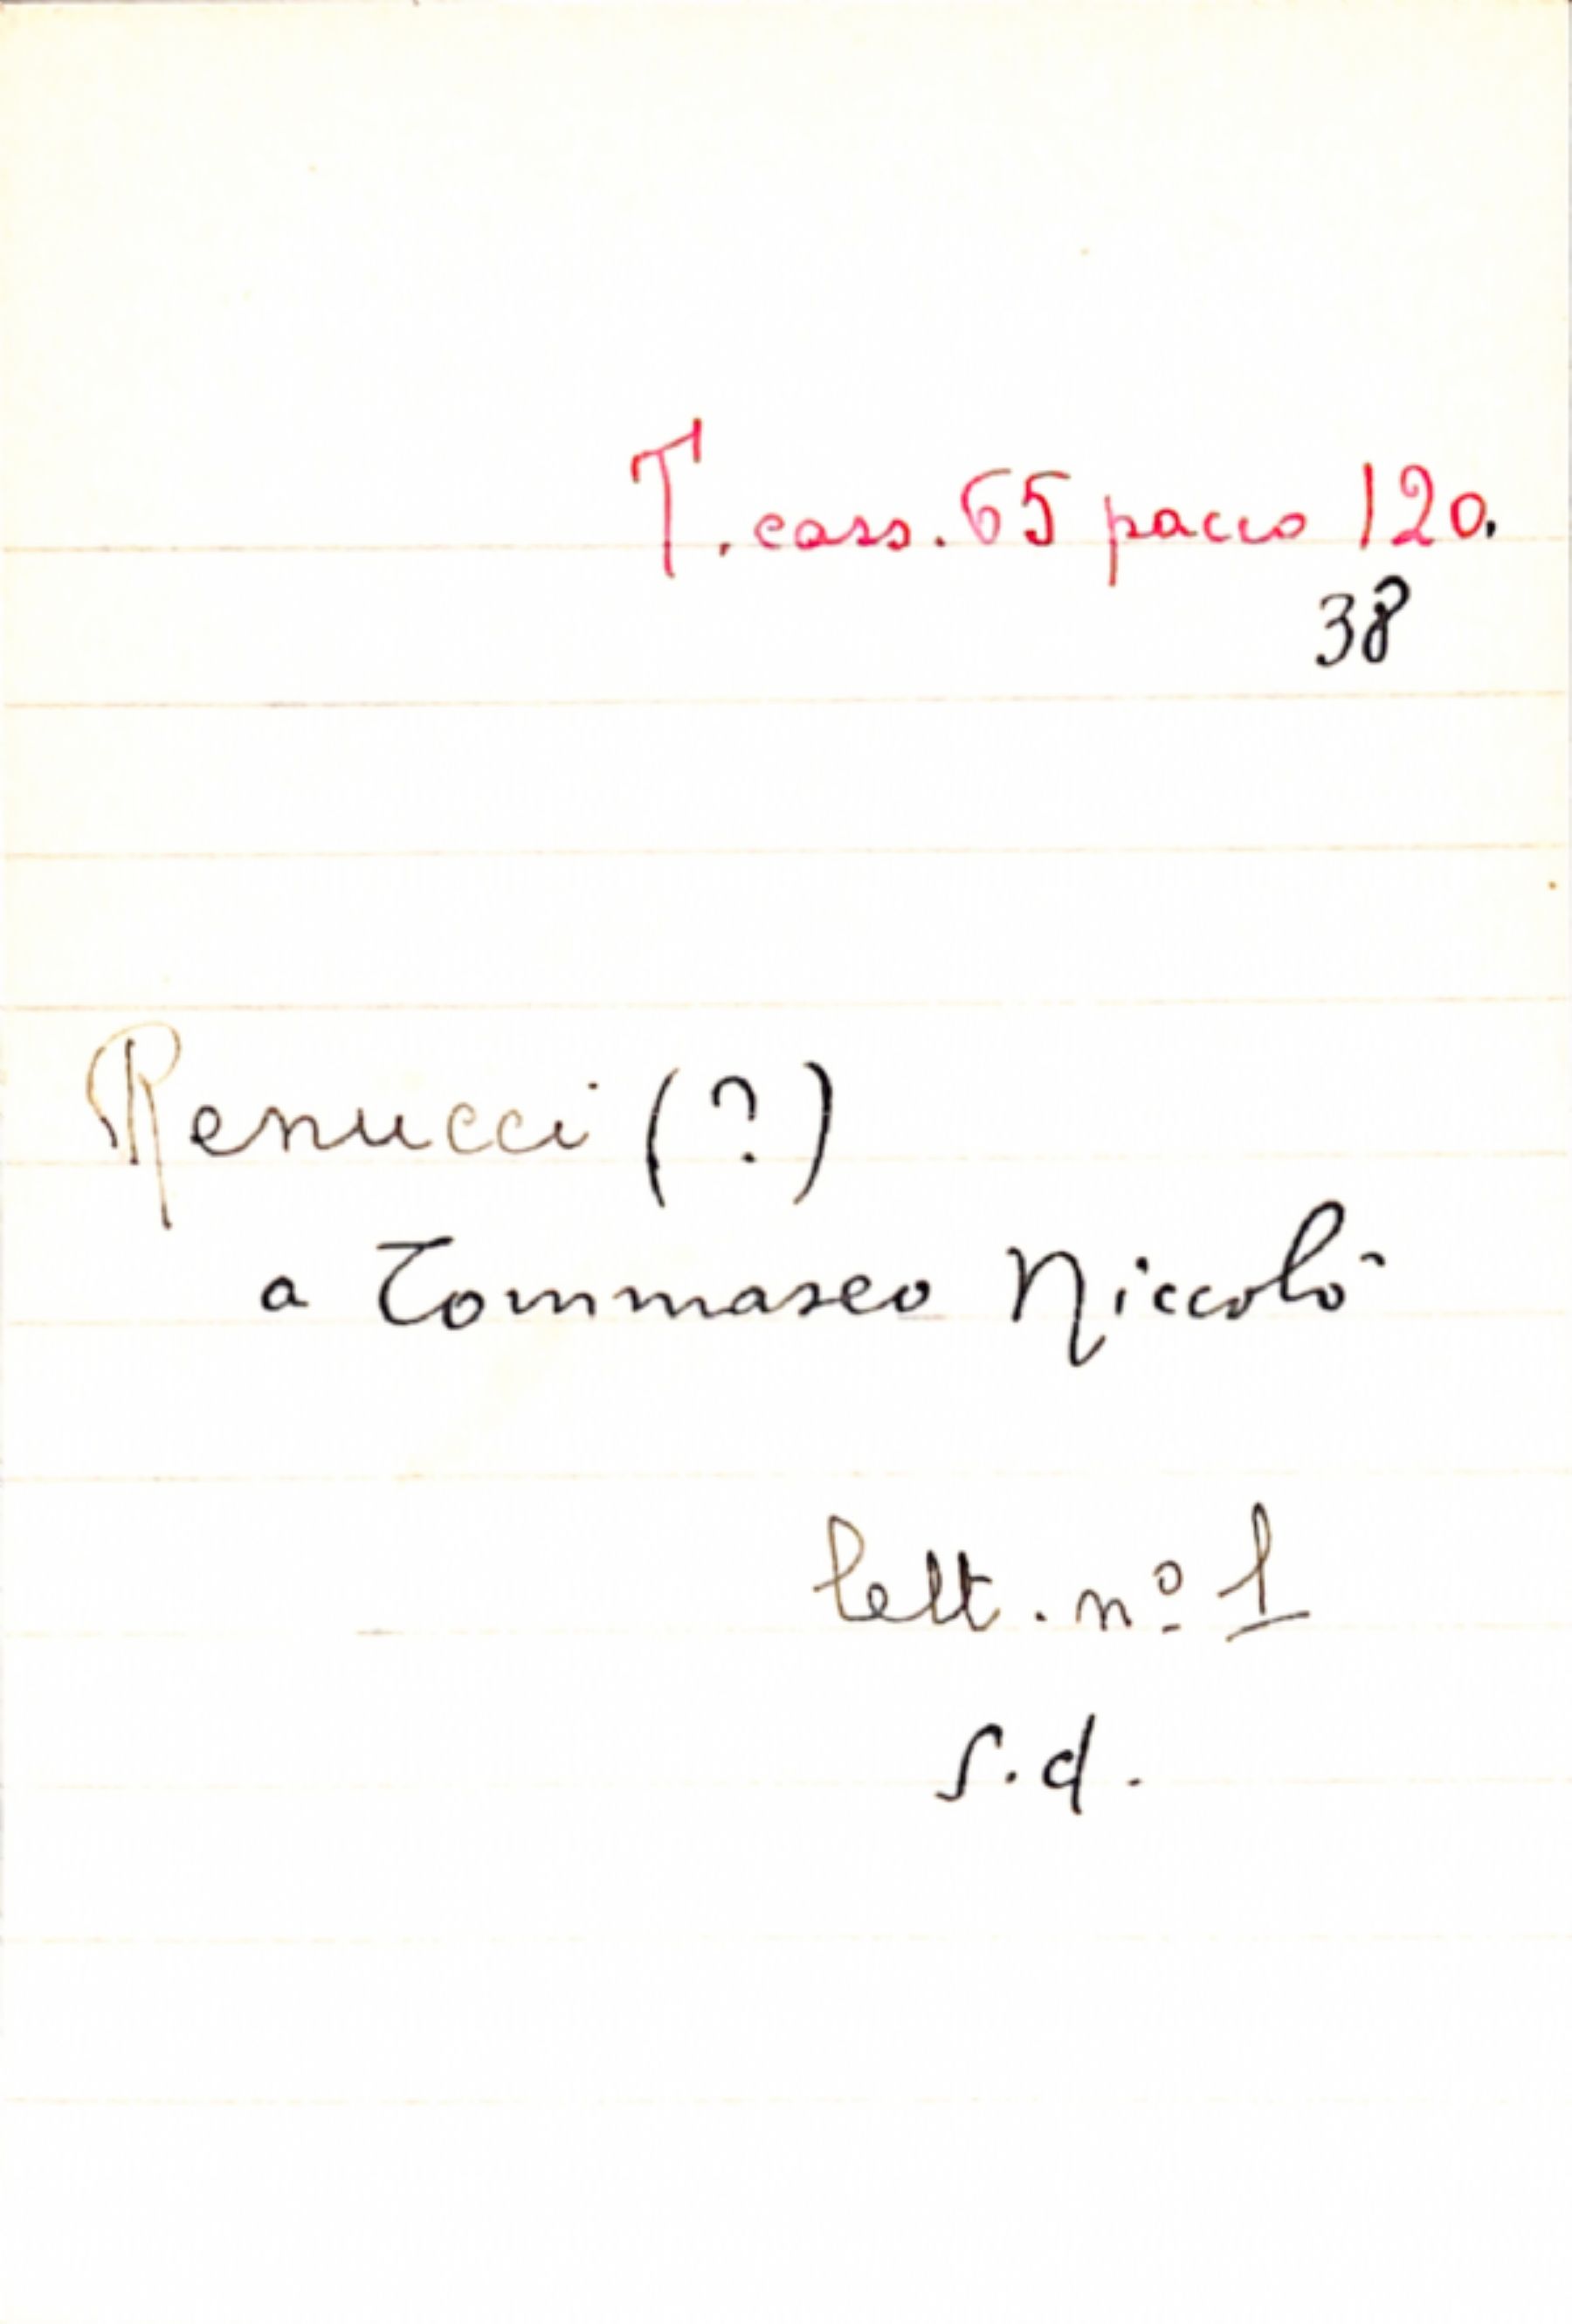 T. cass. 65 pacco 120.
38
Renucci (?)
a Tommaseo Niccolò
lett. nº 1
s.d.